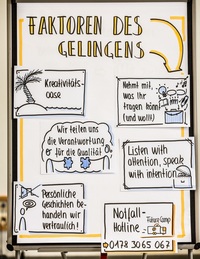 FAKTOREN DES
GELINGENS
Kreativitäts-
oase
Nehmt mit,
was Ihr
tragen könnt
(und wollt)
Wir teilen uns
die Verantwortung
für die Qualität
Listen with
attention, speak
with intention
Persönliche
Geschichten be-
handeln wir
vertraulich!
Notfall-
Hotline
0478 3065 067